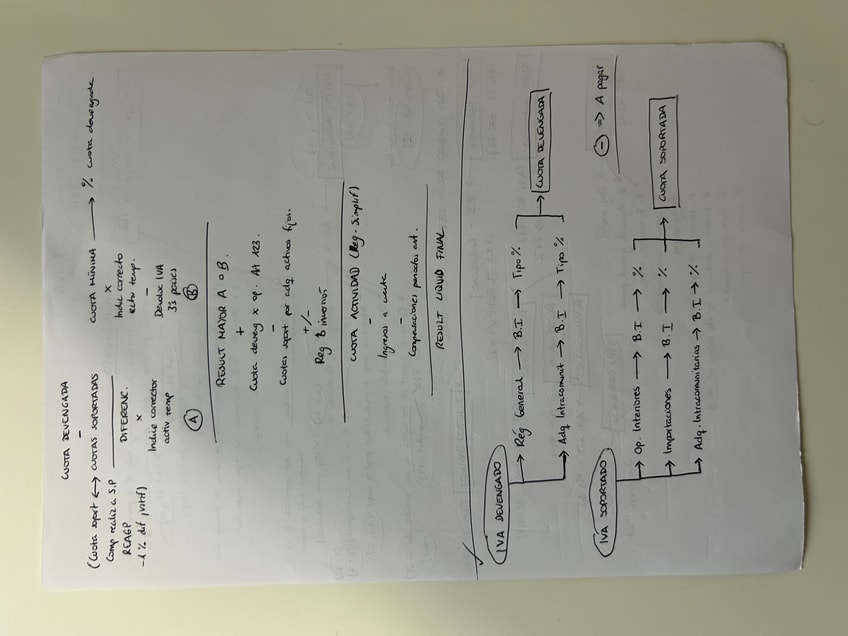 CUOTA DEVENGADA
-
(Cuota soport ↔ CUOTAS SOPORTADAS
Comp realiz a S.P
REAGP
-1% dif
DIFERENC.
×
Indice corrector
activ temp
Ⓐ
CUOTA MÍNIMA → % cuota devengada
×
Indic correcto
activ temp.
-
Devoluc IVA
33 países
Ⓑ
RESULT MAYOR A o B.
+
Cuota deveng x op. At 123.
-
Cuotas soport por adq activos fijos.
+/-
Reg B inversión
CUOTA ACTIVIDAD (Reg. Simplif)
-
Ingresos a cuenta
-
Compensaciones periodos ant.
RESULT LIQUID FINAL
IVA DEVENGADO
→ Rég General → B.I → Tipo %
→ Adq Intracomunit → B.I → Tipo %
→ CUOTA DEVENGADA
⊖ ⇒ A pagar
IVA SOPORTADO
→ Op. Interiores → B.I → %
→ Importaciones → B.I → %
→ Adq. Intracomunitarias → B.I → %
→ CUOTA SOPORTADA